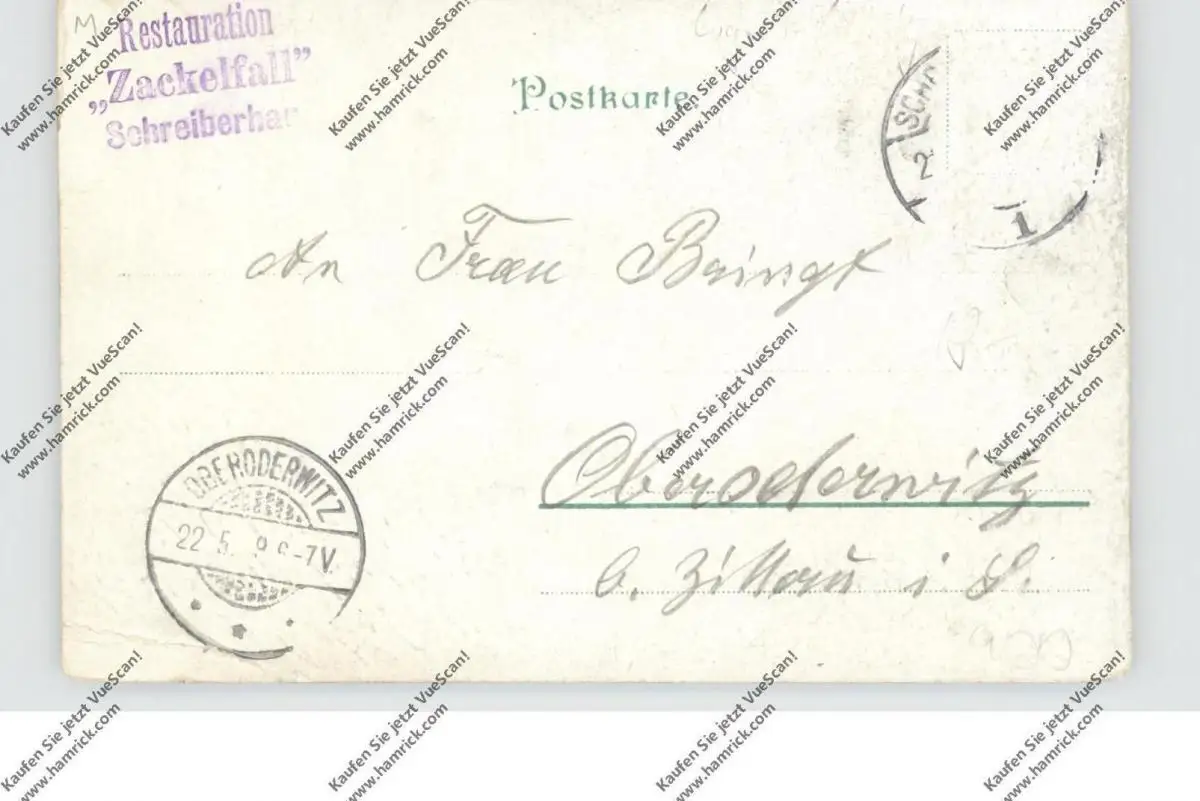 Restauration
„Zackelfall”
Schreiberhau
Postkarte
SCHR
2
1
An Frau
Oberoderwitz
b. Zittau i S.
OBERODERWITZ
22 5. 9 6-7V.
Kaufen Sie jetzt VueScan!
www.hamrick.com